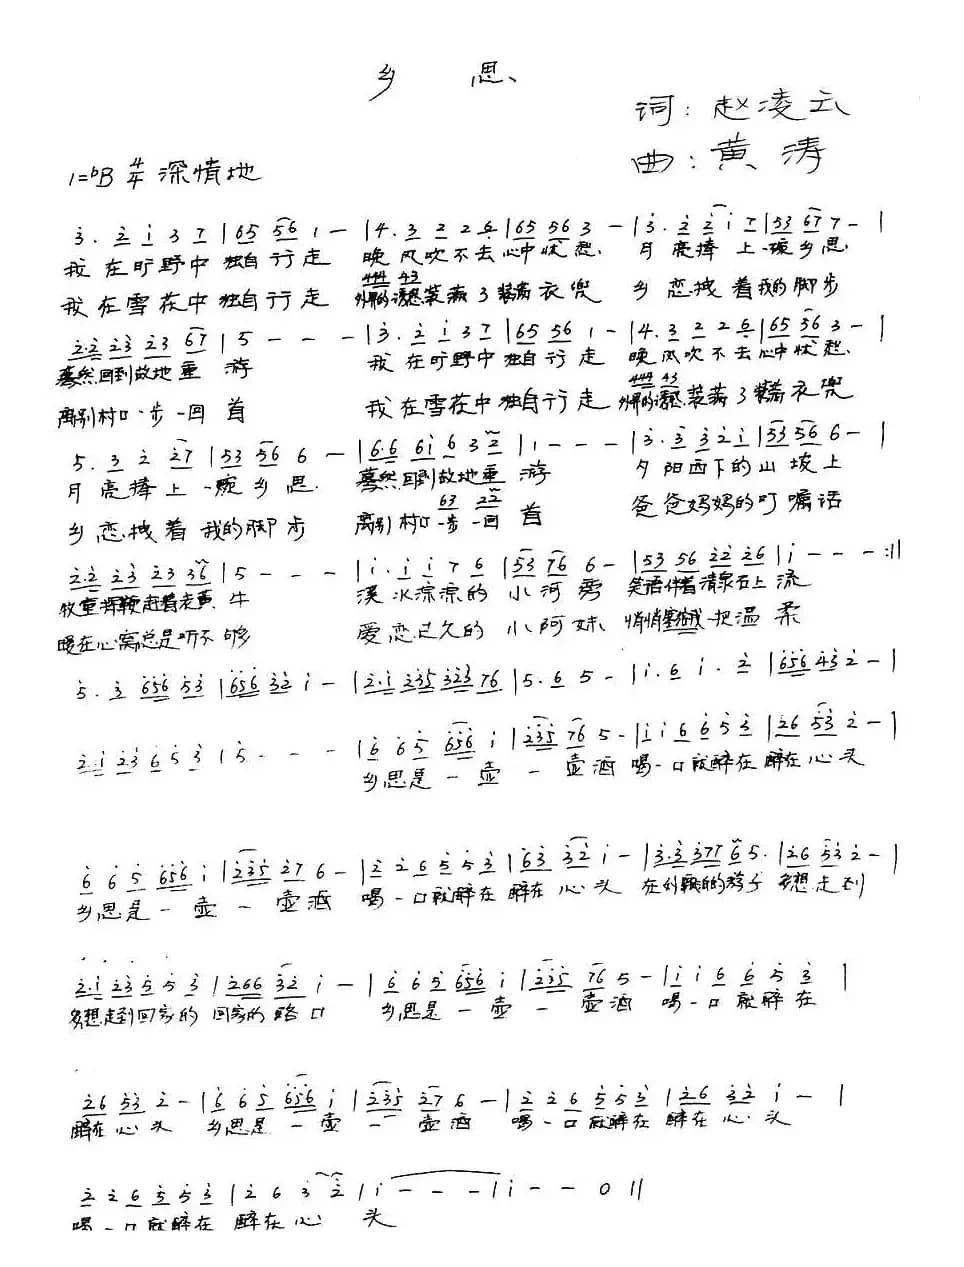 乡 思
词：赵凌云
曲：黄涛
1=♭B 4/4 深情地
3. 2 1 3 7 | 65 56 1 — | 4. 3 2 2 6 | 65 56 3 — | 3. 2 2 1 7 | 53 67 7 — |
我在旷野中独自行走 晚风吹不去心中忧愁. 月亮捧上一碗乡思.
444 43
我在雪花中独自行走 装满了装满衣兜 乡恋拽着我的脚步
2.2 23 23 67 | 5 — — — | 3. 2 1 3 7 | 65 56 1 — | 4. 3 2 2 6 | 65 56 3 — |
蓦然回到故地重游 我在旷野中独自行走 晚风吹不去心中忧愁.
444 43
离别村口一步一回首 我在雪花中独自行走 装满了装满衣兜
5. 3 2 27 | 53 56 6 — | 6.6 61 6 3 2 | 1 — — — | 3. 3 3 2 1 | 53 56 6 — |
月亮捧上一碗乡思. 蓦然回到故地重游 夕阳西下的山坡上
63 22
乡恋拽着我的脚步 离别村口一步一回首 爸爸妈妈的叮嘱话
2.2 23 23 36 | 5 — — — | 1. 1 1 7 6 | 53 76 6 — | 53 56 22 26 | 1 — — — :||
牧童挥鞭赶着老黄牛 溪水淙淙的小河秀 笑语伴着清泉石上流
暖在心窝总是听不够 爱恋已久的小阿妹 悄悄塞给我一把温柔
5. 3 656 53 | 656 32 1 — | 2.1 235 323 76 | 5. 6 5 — | 1. 6 1. 2 | 656 43 2 — |
2.1 23 6 5 3 | 5 — — — | 6 6 5 656 1 | 235 76 5 — | 1 1 6 6 5 3 | 26 53 2 — |
乡思是一壶一壶酒 喝一口就醉在醉在心头
6 6 5 656 1 | 235 27 6 — | 2 2 6 5 5 3 | 63 32 1 — | 3.3 377 6 5. | 26 53 2 — |
乡思是一壶一壶酒 喝一口就醉在醉在心头 在外的游子多想走到
2.1 23 5 5 3 | 266 32 1 — | 6 6 5 656 1 | 235 76 5 — | 1 1 6 6 5 3 |
多想走到回家的回家的路口 乡思是一壶一壶酒 喝一口就醉在
26 53 2 — | 6 6 5 656 1 | 235 27 6 — | 2 2 6 5 5 3 | 26 32 1 — |
醉在心头 乡思是一壶一壶酒 喝一口就醉在醉在心头
2 2 6 5 5 3 | 2 6 3 2 | 1 — — — | 1 — — 0 ||
喝一口就醉在醉在心头